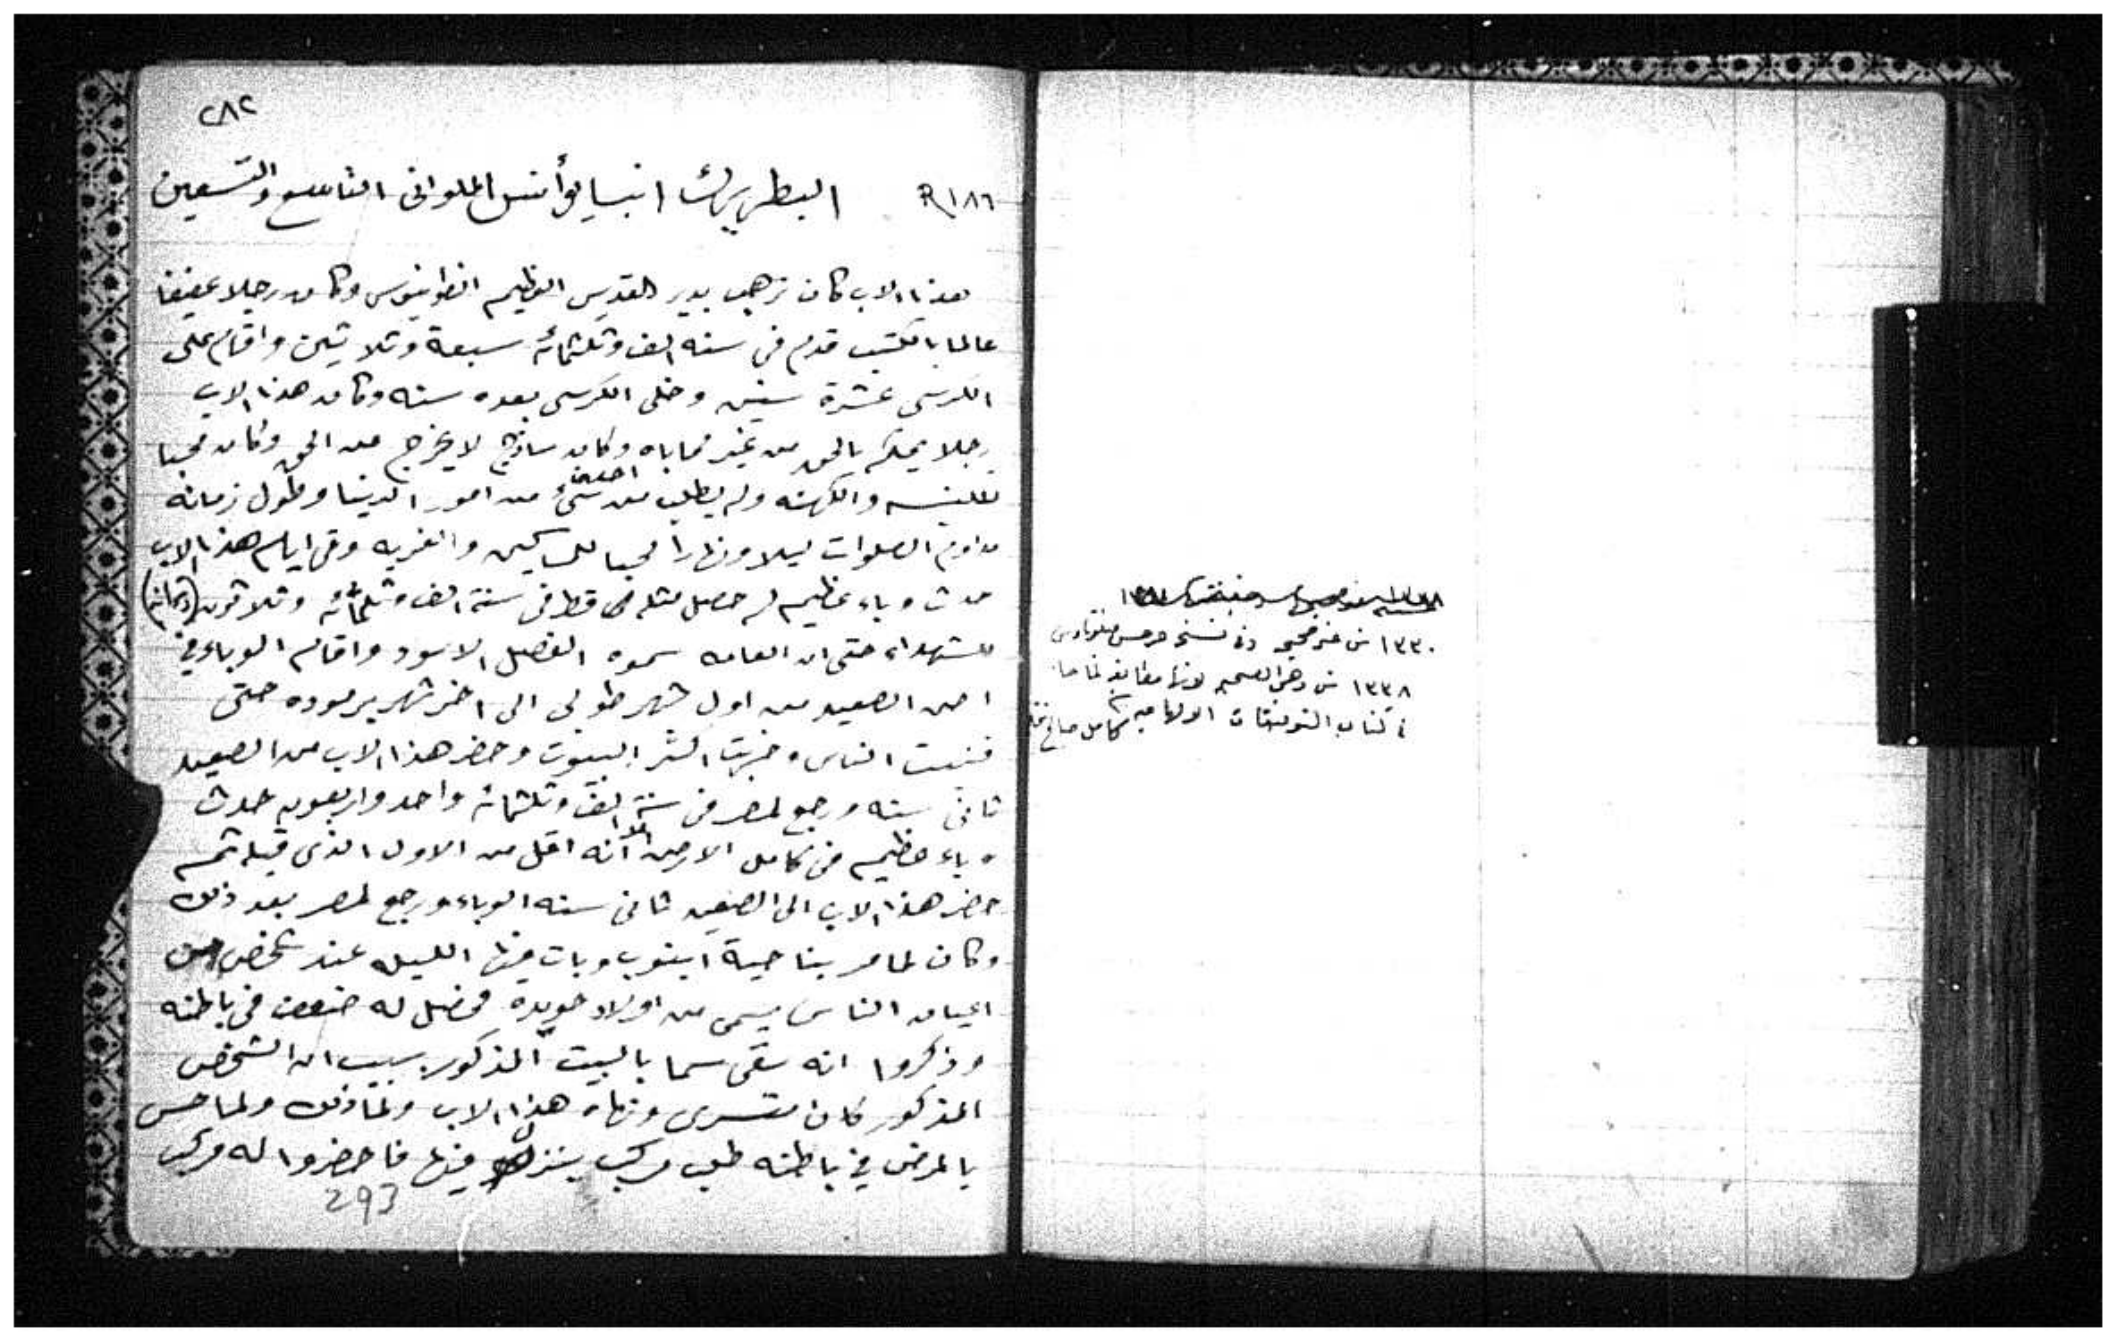 ٢٨٢
R ١٨٦ البطريرك انبا يؤانس الملوانى التاسع والتسعين
هذا الاب كان ترهب بدير القديس العظيم انطونيوس وكان رجلا عفيفا
عالما بالكتب قدم فى سنه الف وثلثمائة سبعة وثلاثين واقام على
الكرسى عشرة سنين وخلى الكرسى بعده سنه وكان هذا الاب
رجلا يحكم بالحق من غير محاباه وكان ساذج لا يخرج عن الحق وكان محبا
للكنيسه والكهنه ولم يطلب من احد شئ من امور الدنيا وطول زمانه
مداوم الصلوات ليلا ونهارا محبا للمساكين والغربه وفى ايام هذا الاب
حدث وباء عظيم لم حصل مثله قط فى سنة الف وثلثمائه وثلاثون (وثمانيه)
للشهداء حتى ان العامه سموه الفصل الاسود واقام الوباء فى
ارض الصعيد من اول شهر طوبى الى اخر شهر برموده حتى
فنيت الناس وخربت اكثر البيوت وحضر هذا الاب من الصعيد
ثانى سنه ورجع لمصر فى سنة الف وثلثمائه واحد واربعون حدث
وباء عظيم فى كامل الارض الا انه اقل من الاول الذى قبله ثم
حضر هذا الاب الى الصعيد ثانى سنه الوباء ورجع لمصر بعد ذلك
وكان لما مر بناحية ابنوب وبات فيها الليله عند شخص من
اعيان الناس يسمى من اولاد حويدة فحصل له ضعف فى باطنه
وذكروا انه سقى سما بالبيت المذكور بسبب ان الشخص
المذكور كان متسرى ونهاه هذا الاب ولما ذلك ولما حس
بالمرض فى باطنه طلب مركب ينزل فيها فاحضروا له مركب
293
١٣٣٠ ش غير صحيح وفى نسخة جرجس فيلوثاوس
١٣٣٨ ش وهى الصحيح لانها مطابقه لما جاء
فى كتاب التوفيقات الالهاميه كامل صالح نخله